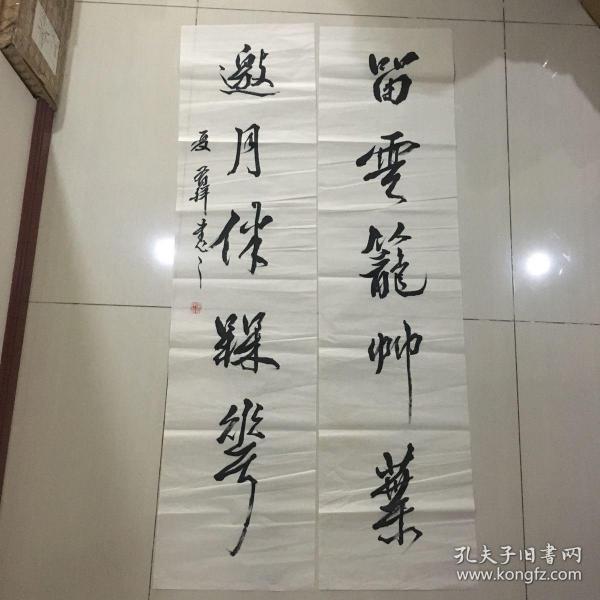 留雲籠竹葉
邀月伴槑華
夏 書之
孔夫子旧书网
www.kongfz.com